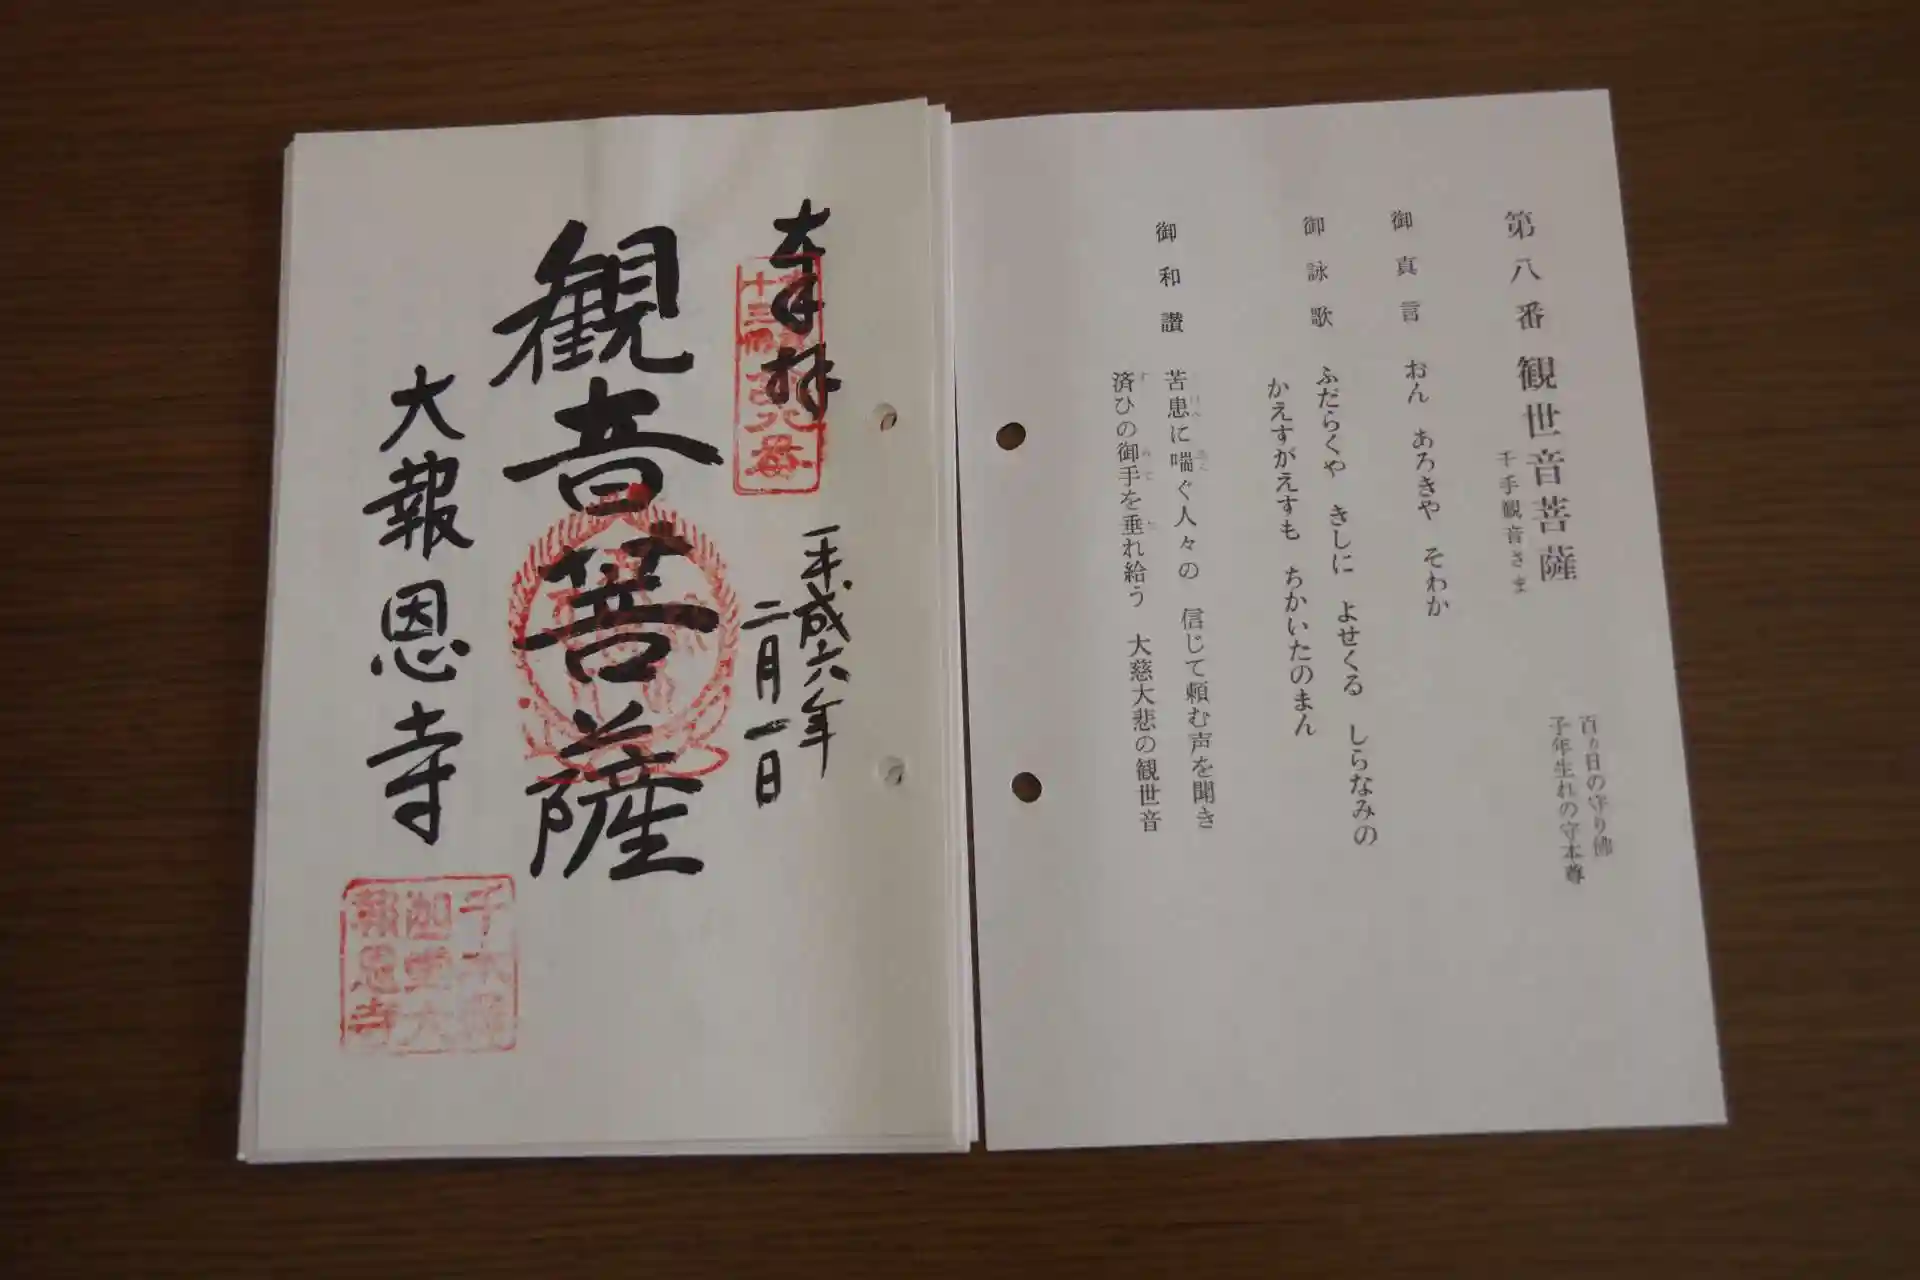 第八番 観世音菩薩
千手観音さま
百ヵ日の守り佛
子年生れの守本尊
御真言 おん あろきや そわか
御詠歌 ふだらくや きしに よせくる しらなみの
かえすがえすも ちかいたのまん
御和讃 苦患に喘ぐ人々の 信じて頼む声を聞き
済ひの御手を垂れ給う 大慈大悲の観世音
奉拝
平成六年
二月一日
観音菩薩
大報恩寺
千本釋
迦堂大
報恩寺